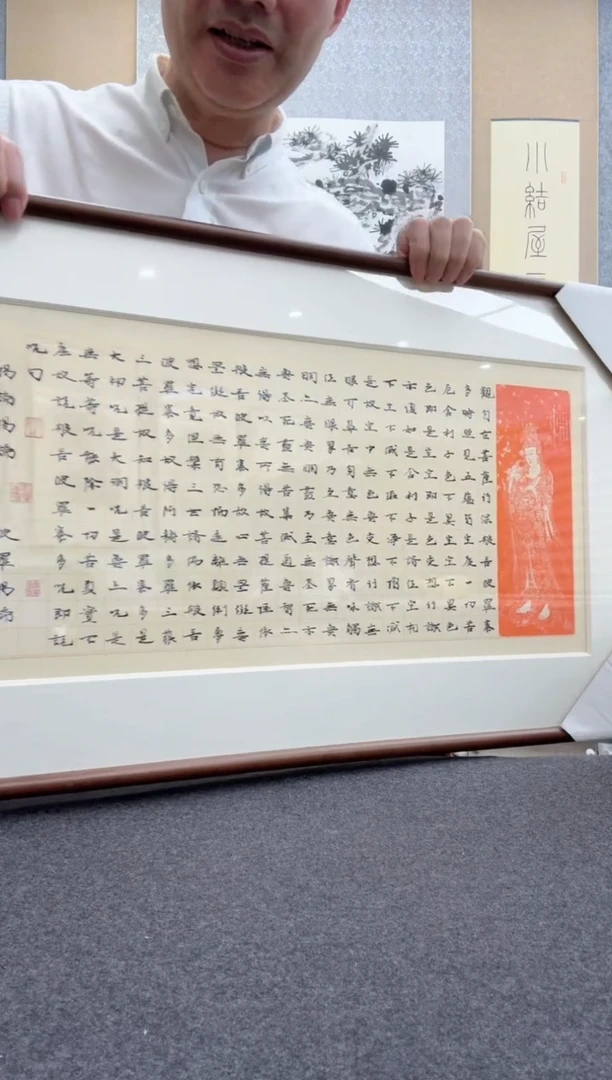 觀自在菩薩行深般若波羅蜜
多時照見五蘊皆空度一切苦
厄舍利子色不異空空不異色
色即是空空即是色受想行識
亦復如是舍利子是諸法空相
不生不滅不垢不淨不增不減
是故空中無色無受想行識無
眼耳鼻舌身意無色聲香味觸
法無眼界乃至無意識界無無
明亦無無明盡乃至無老死亦
無老死盡無苦集滅道無智亦
無得以無所得故菩提薩埵依
般若波羅蜜多故心無罣礙無
罣礙故無有恐怖遠離顛倒夢
想究竟涅槃三世諸佛依般若
波羅蜜多故得阿耨多羅三藐
三菩提故知般若波羅蜜多是
大神咒是大明咒是無上咒是
無等等咒能除一切苦真實不
虛故說般若波羅蜜多咒即說
咒曰
揭諦揭諦 波羅揭諦
結屋